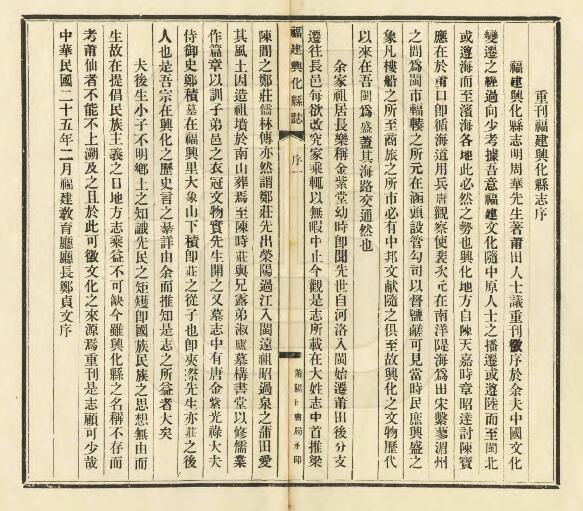 重刊福建興化縣志序
福建興化縣志明周華先生著莆田人士議重刊徵序於余夫中國文化
變遷之經過向少考據吾意福建文化隨中原人士之播遷或遵陸而至閩北
或遵海而至濱海各地此必然之勢也興化地方自陳天嘉時章昭達討陳寶
應在於莆口卽循海道用兵唐觀察使裴次元在南洋隄海爲田宋繫蓼湄州
之間爲閩市輻輳之所元在涵頭設管勾司以督鹽鹺可見當時民庶興盛之
象凡樓船之所至商旅之所市必有中邦文獻隨之俱至故興化之文物歷代
以來在吾閩爲盛蓋其海路交通然也
余家祖居長樂稱金紫堂幼時卽聞先世自河洛入閩始遷莆田後分支
遷往長邑每欲改究家乘輒以無暇中止今觀是志所載在大姓志中首推梁
陳間之鄭莊儒林傳亦然謂鄭莊先出滎陽過江入閩遠祖昭過泉之莆田愛
其風土因造祖墳於南山葬焉至陳時莊與兄露弟淑廬墓構書堂以修儒業
作篇章以訓子弟邑之衣冠文物實先生開之又墓志中有唐金紫光祿大夫
侍御史鄭積墓在福興里大象山下積卽莊之從子也卽夾漈先生亦莊之後
人也是吾宗在興化之歷史言之綦詳由余而推知是志之所益者大矣
夫後生小子不明鄉土之知識先民之矩矱卽國族民族之思想無由而
生故在提倡民族主義之日地方志乘益不可缺今雖興化縣之名稱不存而
考莆仙者不能不上溯及之且於此可徵文化之來源焉重刊是志顧可少哉
中華民國二十五年二月福建教育廳廳長鄭貞文序
福建興化縣誌
序一
莆陽日書局承印